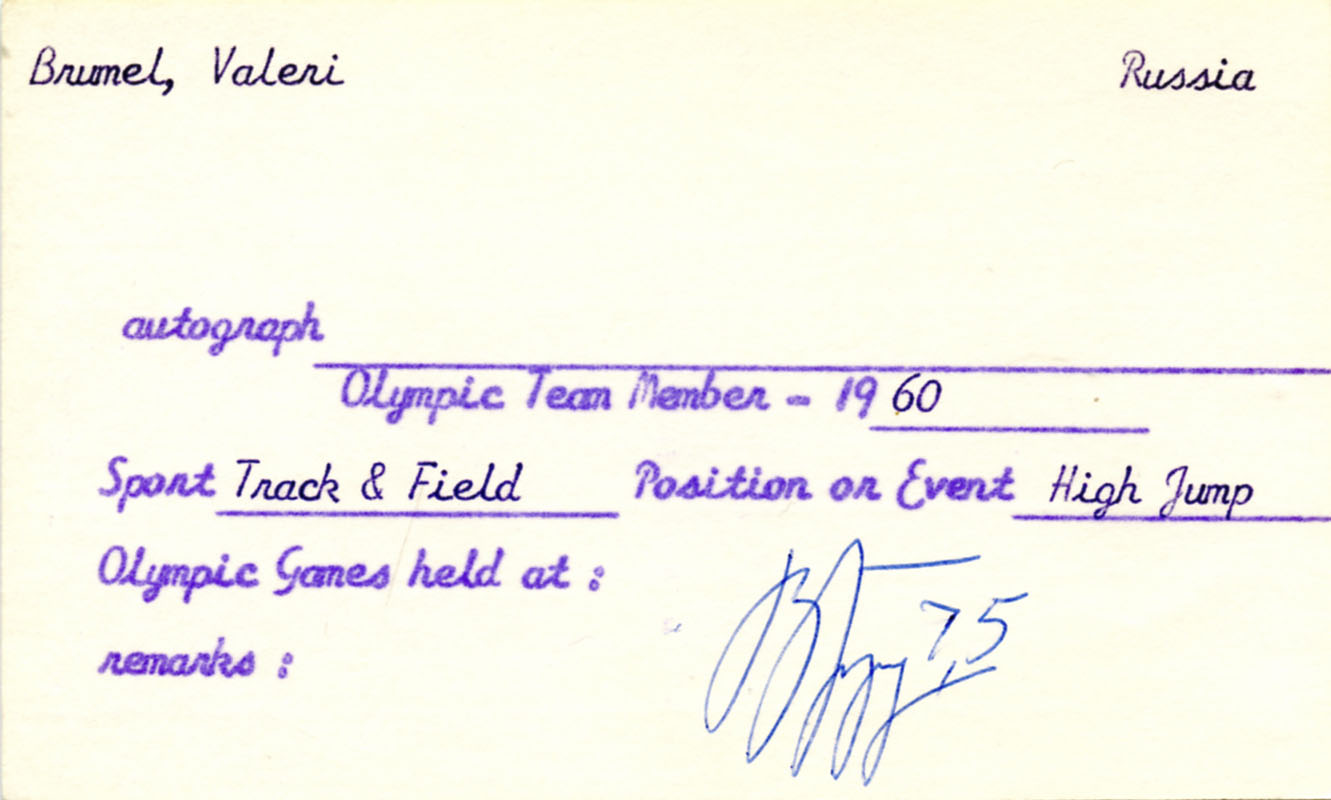 Brumel, Valeri Russia
autograph
Olympic Team Member - 19 60
Sport Track & Field Position or Event High Jump
Olympic Games held at :
remarks :
75